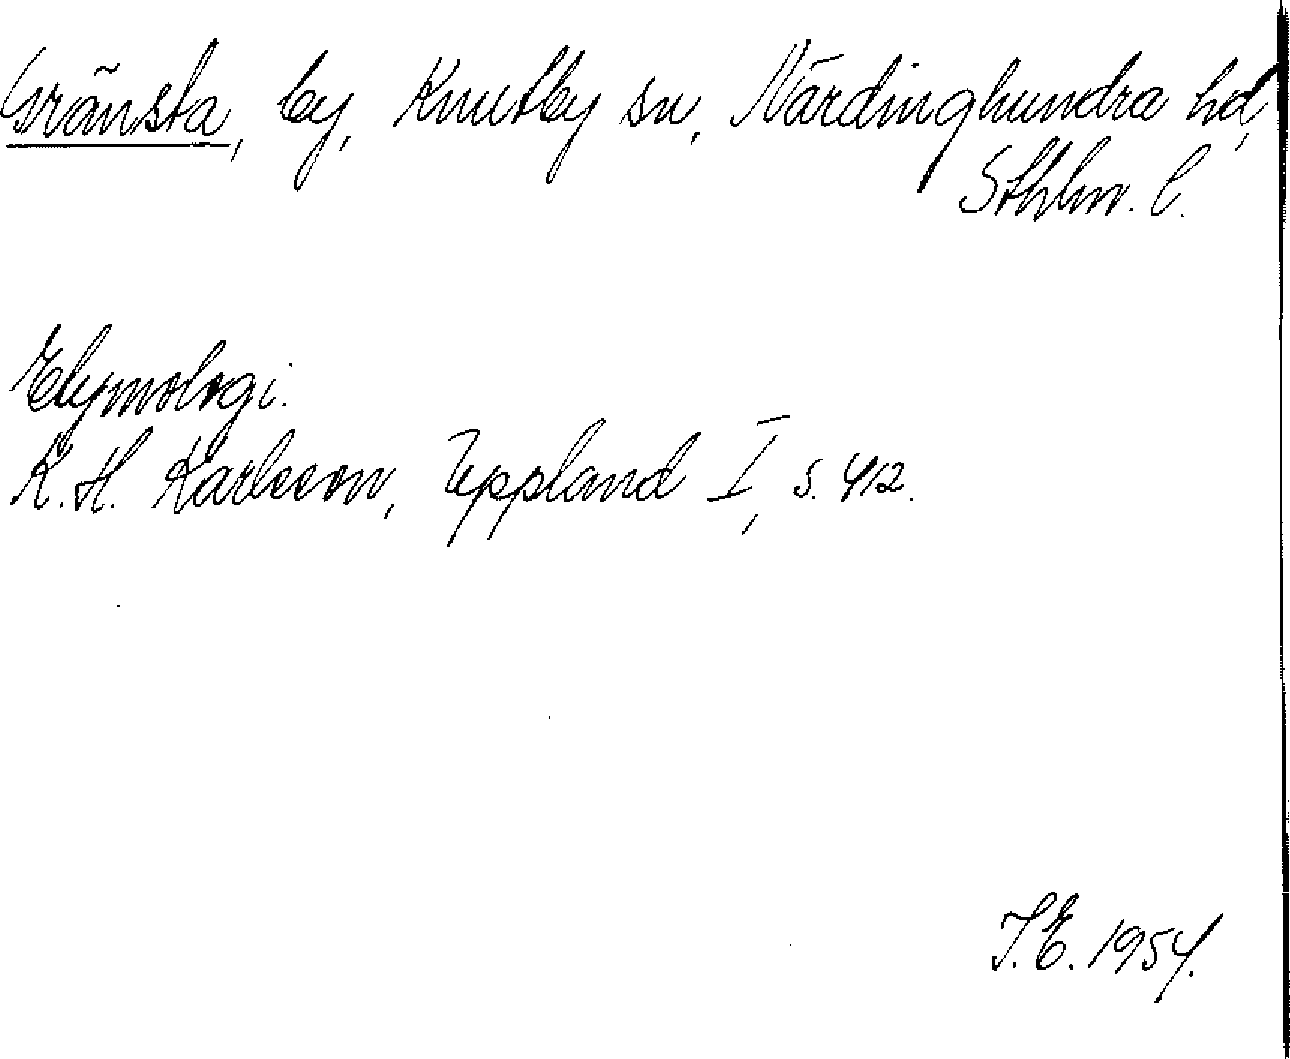 Gränsta, by, Knutby sn, Närdinghundra hd,
Sthlm. l.
Etymologi.
K.H. Karlsson, Uppland I, s. 412.
I.E. 1954.